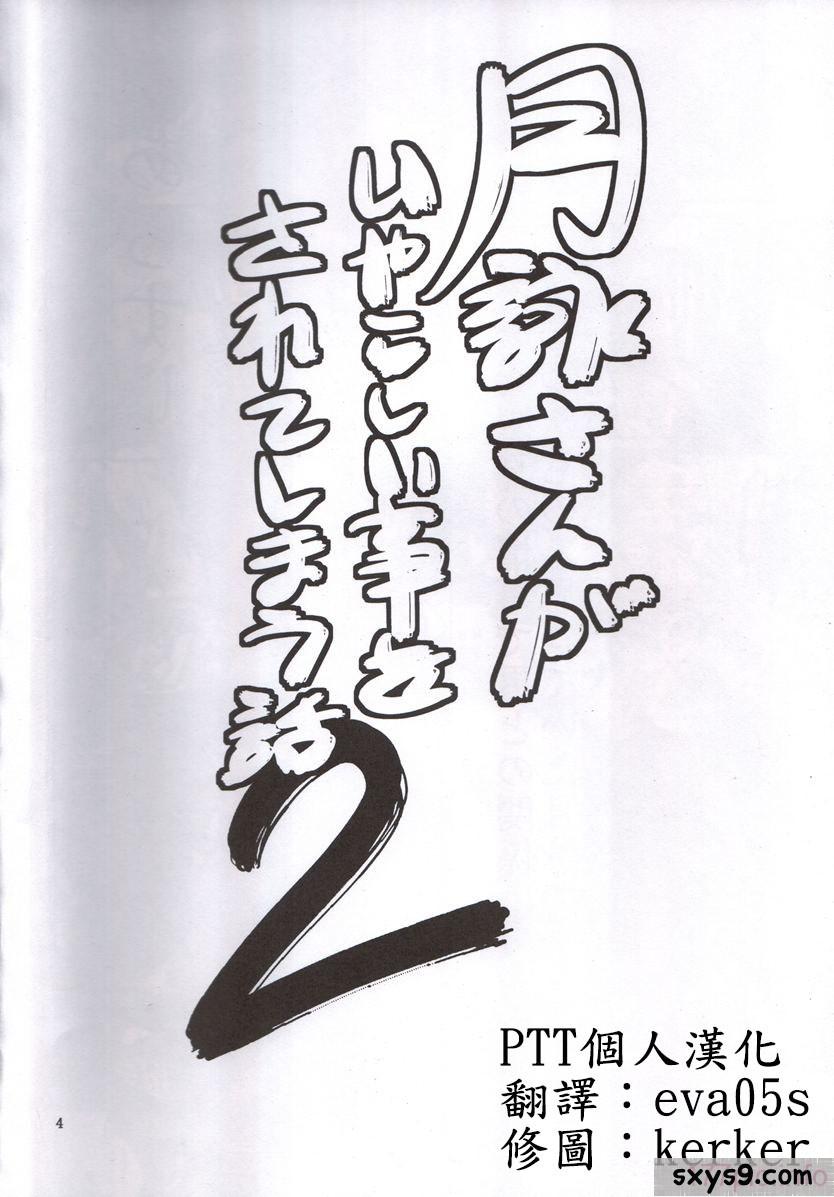 月詠さんが
いやらしい事を
されてしまう話
2
PTT個人漢化
翻譯：eva05s
修圖：kerker
4
sxys9.com